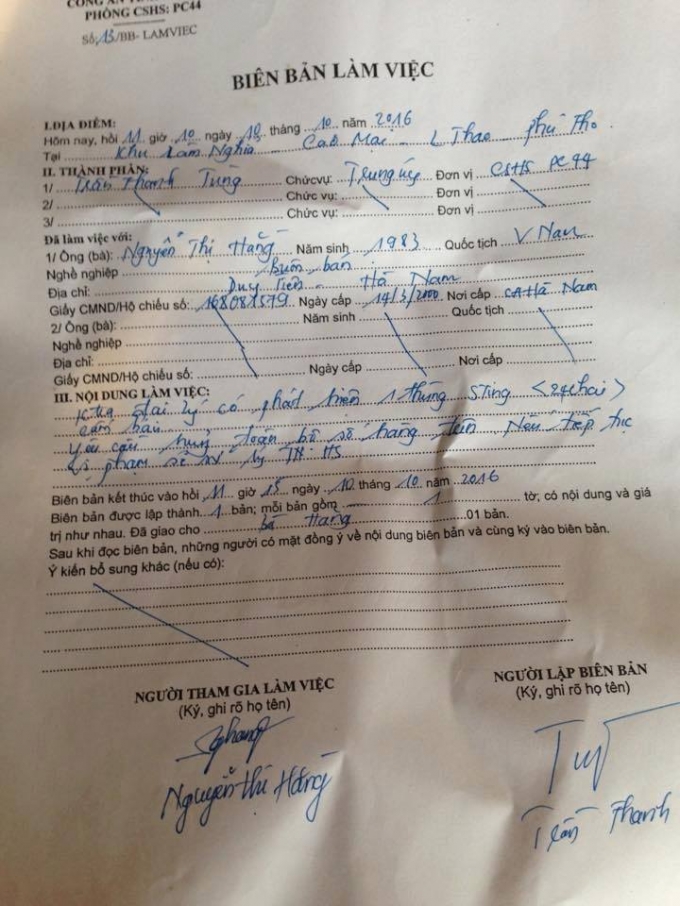 CÔNG AN TỈNH
PHÒNG CSHS: PC44
Số: 13/BB- LAMVIEC
BIÊN BẢN LÀM VIỆC
I.ĐỊA ĐIỂM:
Hôm nay, hồi 11 giờ 10 ngày 10 tháng 10 năm 2016
Tại Khu Lâm Nghĩa Cao Mai L Thao Phú Thọ
II. THÀNH PHẦN:
1/ Trần Thanh Tùng Chức vụ: Trung úy Đơn vị CSHS PC44
2/ Chức vụ: Đơn vị
3/ Chức vụ: Đơn vị
Đã làm việc với:
1/ Ông (bà): Nguyễn Thị Hằng Năm sinh 1983 Quốc tịch V Nam
Nghề nghiệp Buôn bán
Địa chỉ: Duy Tiên Hà Nam
Giấy CMND/Hộ chiếu số: 168081579 Ngày cấp 14/3/2000 Nơi cấp CA Hà Nam
2/ Ông (bà): Năm sinh Quốc tịch
Nghề nghiệp
Địa chỉ:
Giấy CMND/Hộ chiếu số: Ngày cấp Nơi cấp
III. NỘI DUNG LÀM VIỆC:
Ktra đại lý có phát hiện 1 thùng Sting <24chai>
cấm bán
yêu cầu huỷ toàn bộ số hàng trên Nếu tiếp tục
vi phạm sẽ xử lý TNHS
Biên bản kết thúc vào hồi 11 giờ 15 ngày 10 tháng 10 năm 2016
Biên bản được lập thành 1 bản; mỗi bản gồm 1 tờ; có nội dung và giá
trị như nhau. Đã giao cho bà Hằng 01 bản.
Sau khi đọc biên bản, những người có mặt đồng ý về nội dung biên bản và cùng ký vào biên bản.
Ý kiến bổ sung khác (nếu có):
NGƯỜI THAM GIA LÀM VIỆC NGƯỜI LẬP BIÊN BẢN
(Ký, ghi rõ họ tên) (Ký, ghi rõ họ tên)
Nguyễn Thị Hằng Trần Thanh